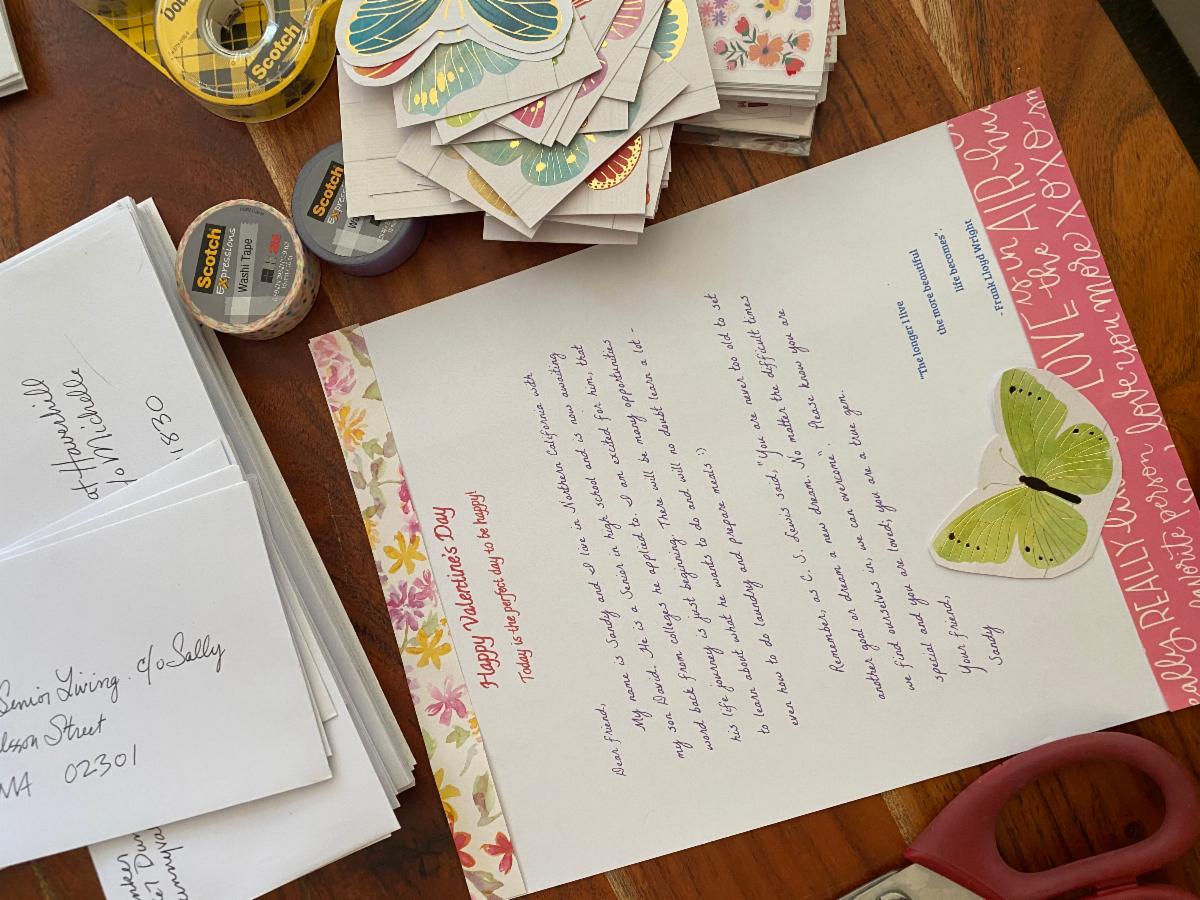 Happy Valentine's Day
Today is the perfect day to be happy!
Dear Friend,
My name is Sandy and I live in Northern California with
my son David. He is a Senior in high school and is now awaiting
word back from colleges he applied to. I am excited for him, that
his life journey is just beginning. There will be many opportunities
to learn about what he wants to do and will no doubt learn a lot -
even how to do laundry and prepare meals :)
Remember, as C. S. Lewis said, "You are never too old to set
another goal or dream a new dream". No matter the difficult times
we find ourselves in, we can overcome. Please know you are
special and you are loved; you are a true gem.
Your friend,
Sandy
"The longer I live
the more beautiful
life becomes".
- Frank Lloyd Wright
LOVE is in the AIR
XOXO
REALLY
love you more
favorite person
Scotch
Scotch
Expressions
Washi Tape
3M
Scotch
Expressions
at Haverhill
c/o Michelle
1830
Senior Living. c/o Sally
Street
MA 02301